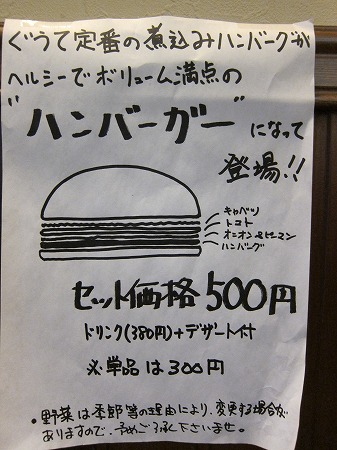 ぐうて定番の煮込みハンバーグが
ヘルシーでボリューム満点の
"ハンバーガー"になって
登場!!
キャベツ
トマト
オニオン&ピーマン
ハンバーグ
セット価格500円
ドリンク(380円)+デザート付
※単品は300円
・野菜は季節等の理由により、変更する場合が
ありますので、予めご了承下さいませ。